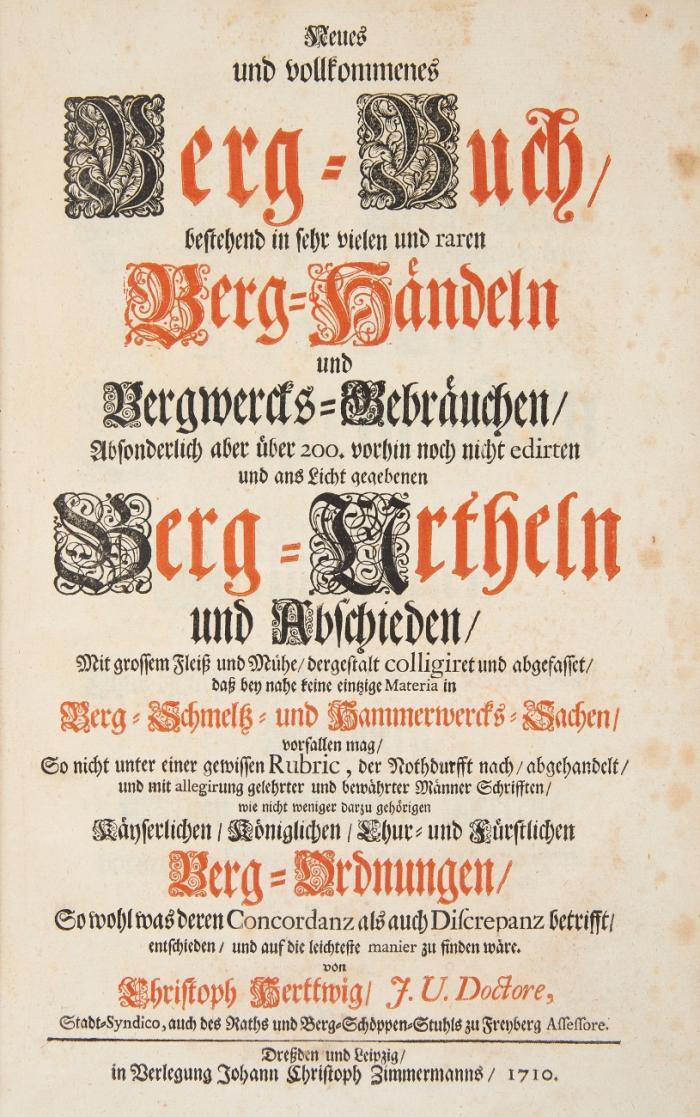 Neues
und vollkommenes
Berg-Buch/
bestehend in sehr vielen und raren
Berg-Händeln
und
Bergwercks-Gebräuchen/
Absonderlich aber über 200. vorhin noch nicht edirten
und ans Licht gegebenen
Berg-Urtheln
und Abschieden/
Mit grossem Fleiß und Mühe/ dergestalt colligiret und abgefasset/
daß bey nahe keine eintzige Materia in
Berg- Schmeltz- und Hammerwercks-Sachen/
vorfallen mag/
So nicht unter einer gewissen Rubric, der Nothdurfft nach/ abgehandelt/
und mit allegirung gelehrter und bewährter Männer Schrifften/
wie nicht weniger darzu gehörigen
Käyserlichen / Königlichen / Chur- und Fürstlichen
Berg-Ordnungen/
So wohl was deren Concordanz als auch Discrepanz betrifft/
entschieden/ und auf die leichteste manier zu finden wäre.
von
Christoph Herttwig/ J. U. Doctore,
Stadt-Syndico, auch des Raths und Berg-Schöppen-Stuhls zu Freyberg Assessore.
Dreßden und Leipzig/
in Verlegung Johann Christoph Zimmermanns/ 1710.